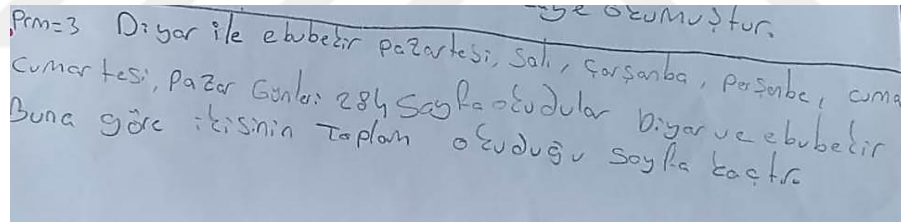 ye okumuştur.
Prm=3 Diyar ile ebubekir pazartesi, Salı, Çarşanba, perşenbe, cuma
cumartesi, pazar Günleri 284 Sayfa okudular Diyar ve ebubekir
Buna göre ikisinin Toplam okuduğu sayfa kaçtır.